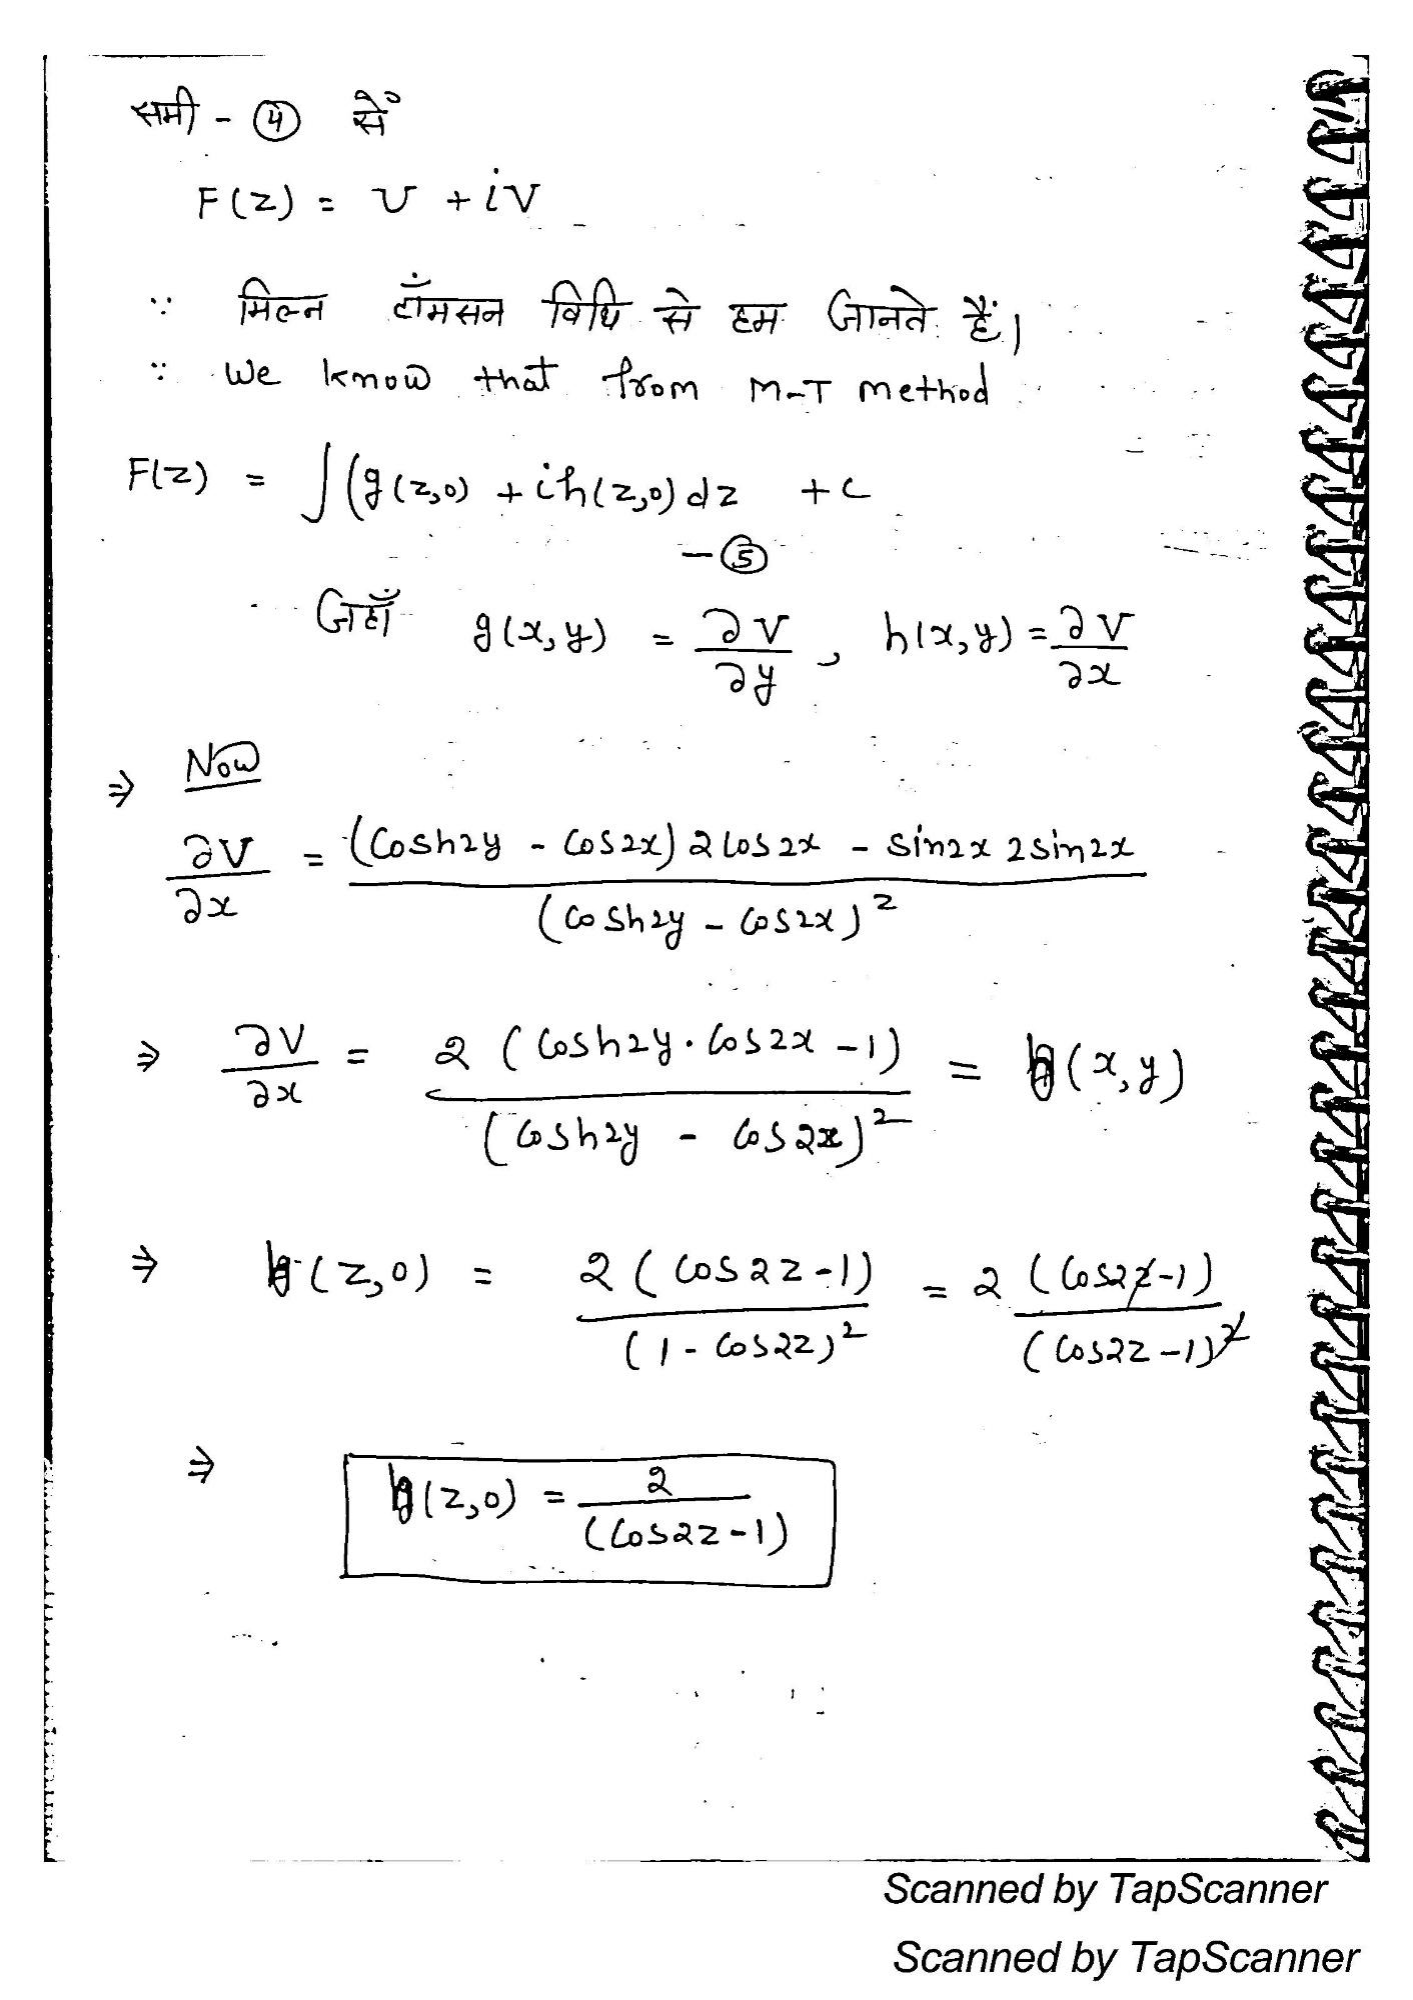 समी - ④ से
F(z) = U + iV
∵ मिल्न टॉमसन विधि से हम जानते हैं।
∵ We know that from M-T method
F(z) = ∫(g(z,0) + ih(z,0) dz + c
- ⑤
जहाँ g(x,y) = ∂V/∂y , h(x,y) = ∂V/∂x
⇒ Now
∂V/∂x = (Cosh2y - Cos2x) 2 Cos2x - Sin2x 2 Sin2x / (Cosh2y - Cos2x)²
⇒ ∂V/∂x = 2 (Cosh2y · Cos2x - 1) / (Cosh2y - Cos2x)² = h(x,y)
⇒ h(z,0) = 2 (Cos2z - 1) / (1 - Cos2z)² = 2 (Cos2z - 1) / (Cos2z - 1)²
⇒ h(z,0) = 2 / (Cos2z - 1)
Scanned by TapScanner
Scanned by TapScanner